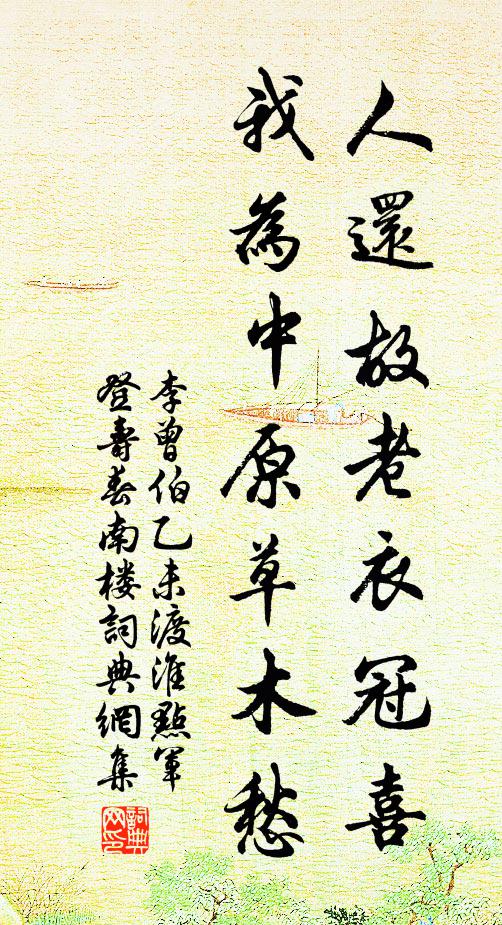 人還故老衣冠喜
我為中原草木愁
李曾伯乙未渡淮點軍
登壽春南楼詞典網集
詞典網印